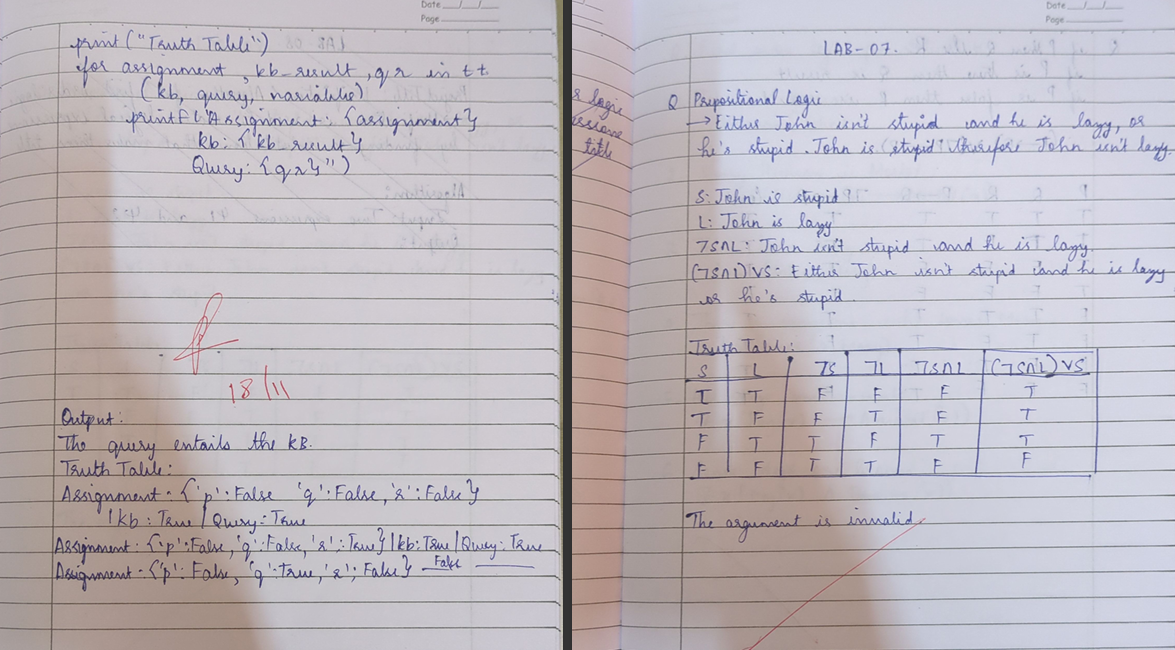 Date __/__/__
Page ____
print ("Truth Table")
for assignment, kb_result, qr in tt
(kb, query, variable)
printf ("Assignment: {assignment}
kb: {kb_result}
Query: {qr}")
18/11
Output:
The query entails the KB.
Truth Table:
Assignment: {'p': False 'q': False, 'r': False}
| kb: True | Query: True
Assignment: {'p': False, 'q': False, 'r': True} | kb: True | Query: True
Assignment: {'p': False, 'q': True, 'r': False} False
Date __/__/__
Page ____
LAB-07.
logic
title
Q Prepositional Logic
→ Either John isn't stupid and he is lazy, or
he's stupid. John is stupid therefore John isn't lazy.
S: John is stupid
L: John is lazy
¬S∩L: John isn't stupid and he is lazy.
(¬S∩L) VS: Either John isn't stupid and he is lazy
or he's stupid.
Truth Table:
S L ¬S ¬L ¬S∩L (¬S∩L) VS
T T F F F T
T F F T F T
F T T F T T
F F T T F F
The argument is invalid